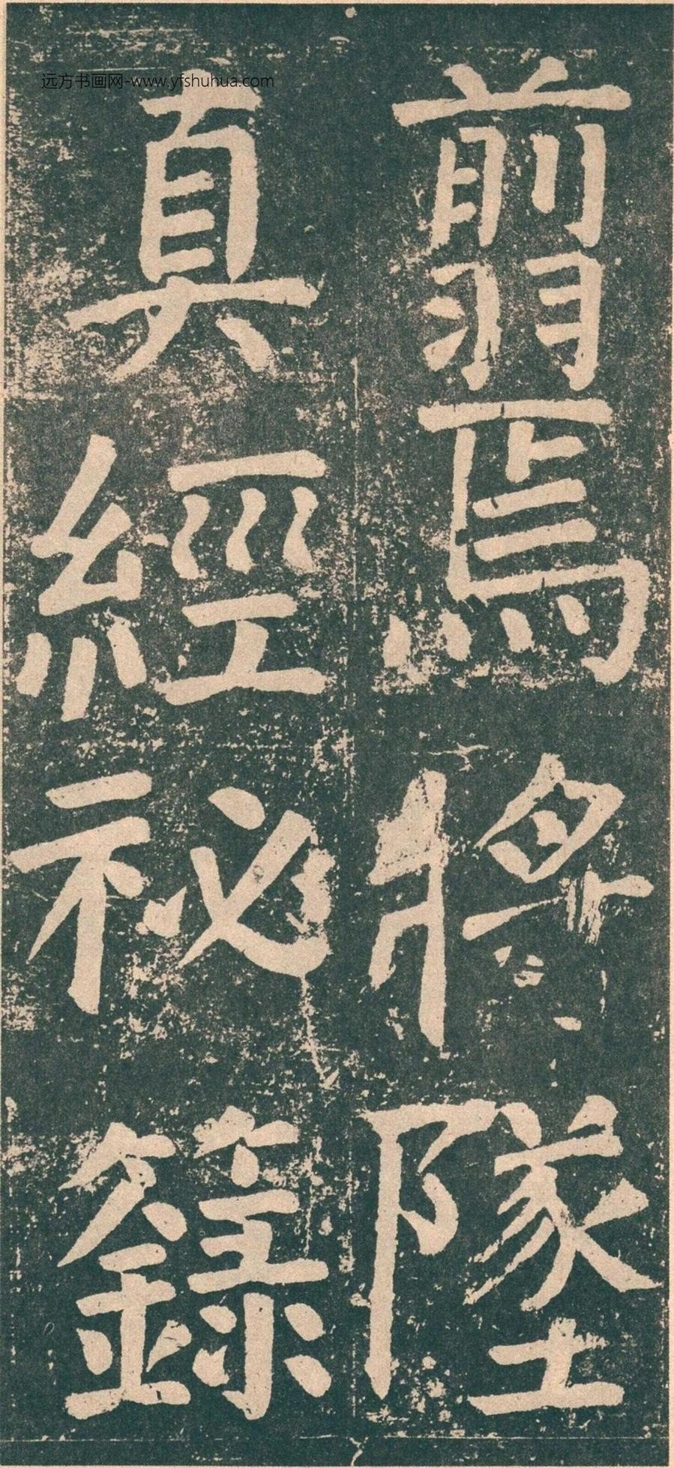 远方书画网-www.yfshuhua.com
翦焉將墜
真經祕籙